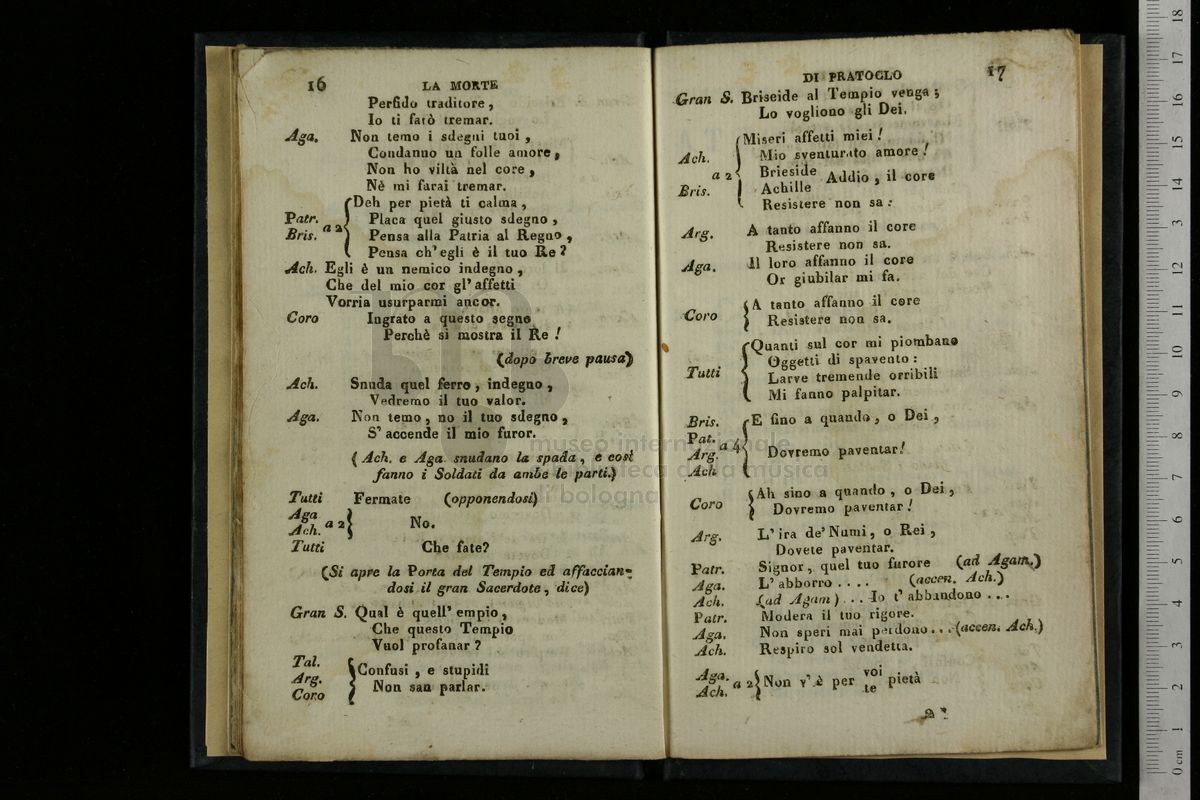 16
LA MORTE
Perfido traditore,
Io ti farò tremar.
Aga. Non temo i sdegni tuoi,
Condanno un folle amore,
Non ho viltà nel core,
Nè mi farai tremar.
Patr. Bris. a 2 { Deh per pietà ti calma,
Placa quel giusto sdegno,
Pensa alla Patria al Regno,
Pensa ch' egli è il tuo Re?
Ach. Egli è un nemico indegno,
Che del mio cor gl' affetti
Vorria usurparmi ancor.
Coro Ingrato a questo segno
Perchè si mostra il Re!
(dopo breve pausa)
Ach. Snuda quel ferro, indegno,
Vedremo il tuo valor.
Aga. Non temo, no il tuo sdegno,
S' accende il mio furor.
(Ach. e Aga. snudano la spada, e così
fanno i Soldati da ambe le parti.)
Tutti Fermate (opponendosi)
Aga Ach. a 2 } No.
Tutti Che fate?
(Si apre la Porta del Tempio ed affaccian-
dosi il gran Sacerdote, dice)
Gran S. Qual è quell' empio,
Che questo Tempio
Vuol profanar?
Tal. Arg. Coro { Confusi, e stupidi
Non san parlar.
DI PRATOCLO
17
Gran S. Briseide al Tempio venga;
Lo vogliono gli Dei.
Ach. Bris. a 2 { Miseri affetti miei!
Mio sventurato amore!
Brieside Achille Addio, il core
Resistere non sa:
Arg. A tanto affanno il core
Resistere non sa.
Aga. Il loro affanno il core
Or giubilar mi fa.
Coro { A tanto affanno il core
Resistere non sa.
Tutti { Quanti sul cor mi piombano
Oggetti di spavento:
Larve tremende orribili
Mi fanno palpitar.
Bris. Pat. Arg. Ach a 4 { E fino a quando, o Dei,
Dovremo paventar!
Coro { Ah sino a quando, o Dei,
Dovremo paventar!
Arg. L' ira de' Numi, o Rei,
Dovete paventar.
Patr. Signor, quel tuo furore (ad Agam.)
Aga. L' abborro .... (accen. Ach.)
Ach. (ad Agam) ... Io t' abbandono ...
Patr. Modera il tuo rigore.
Aga. Non speri mai perdono... (accen. Ach.)
Ach. Respiro sol vendetta.
Aga. Ach. a 2 { Non v' è per voi te pietà
museo internazionale
biblioteca della musica
di bologna